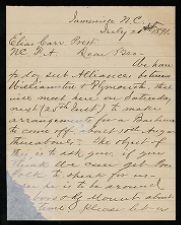 Jamesville N.C.
July 20th 1891.
Elias Carr Prest
N.C. F.A. Dear Bro-
We have
to day sub Alliances between
Williamston & Plymouth. that
will meet here on Saturday
next (25th Inst) to make
arrangements for a Barbecue
to come off about 10th Aug
thereabouts. The object of
this is to ask you, if you
think we can get
Polk to speak for us
he is to be around
Mount about
time. Please let us